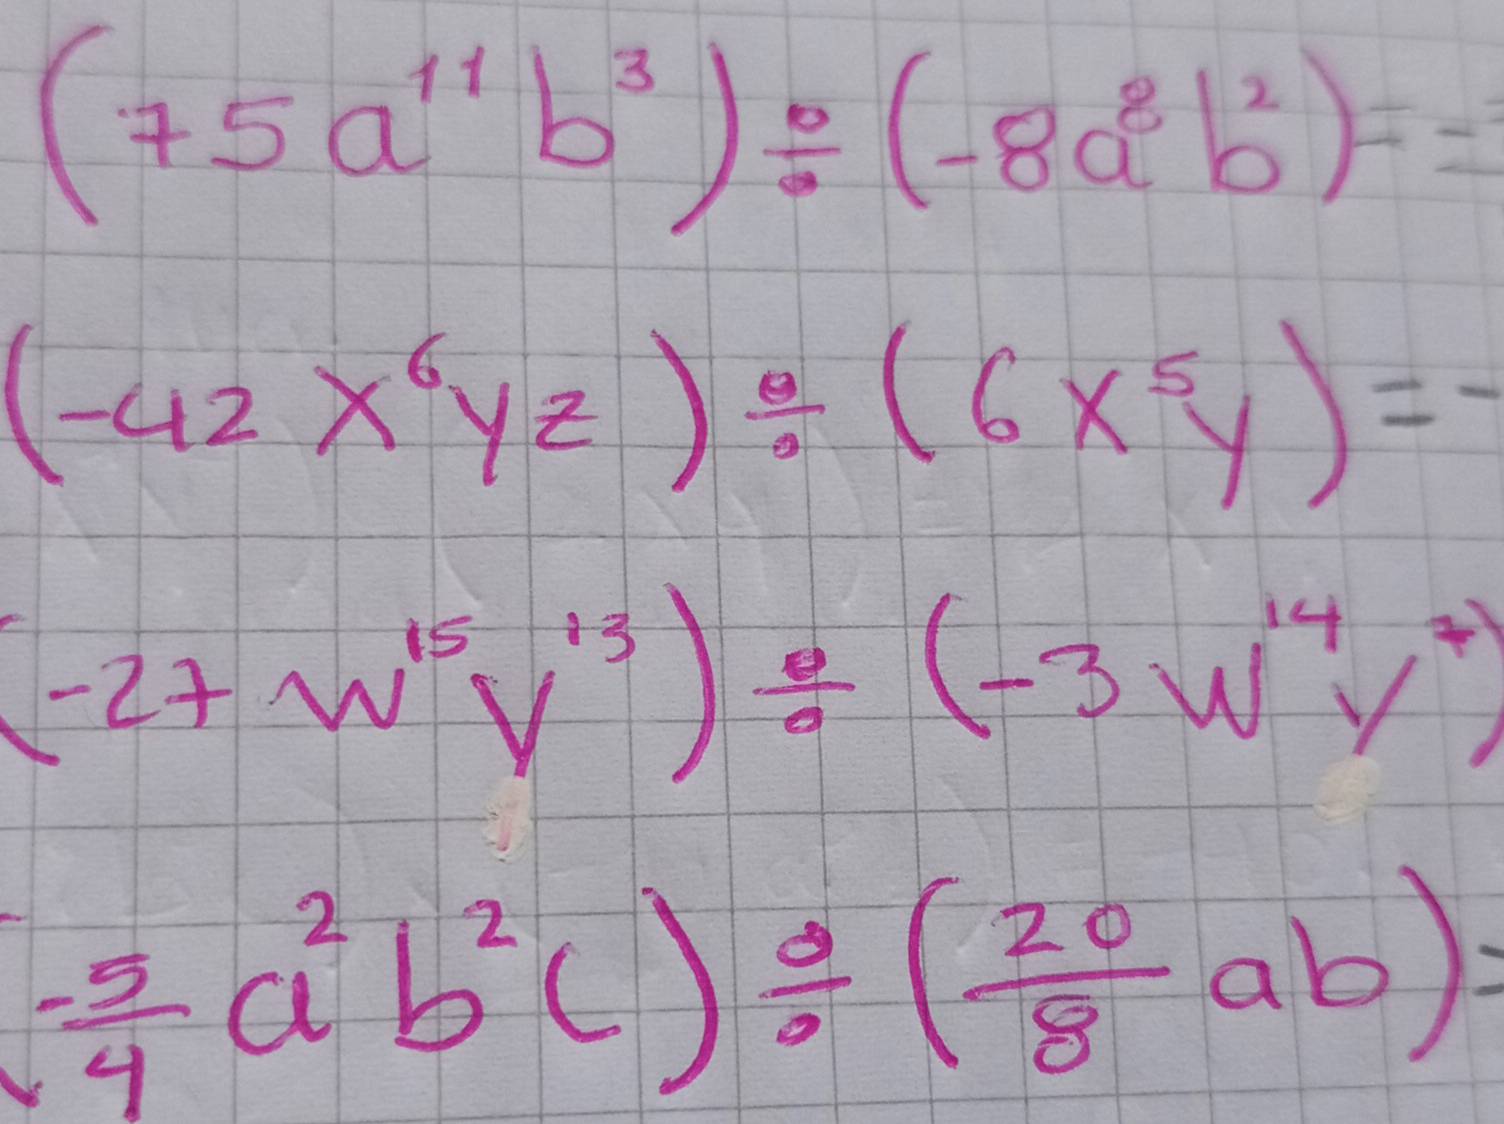 (75a¹¹b³) ÷ (-8a⁸b²) = =
(-42x⁶yz) ÷ (6x⁵y) = -
(-27w¹⁵y¹³) ÷ (-3w¹⁴y⁷)
(-5/4 a²b²c) ÷ (20/8 ab) =